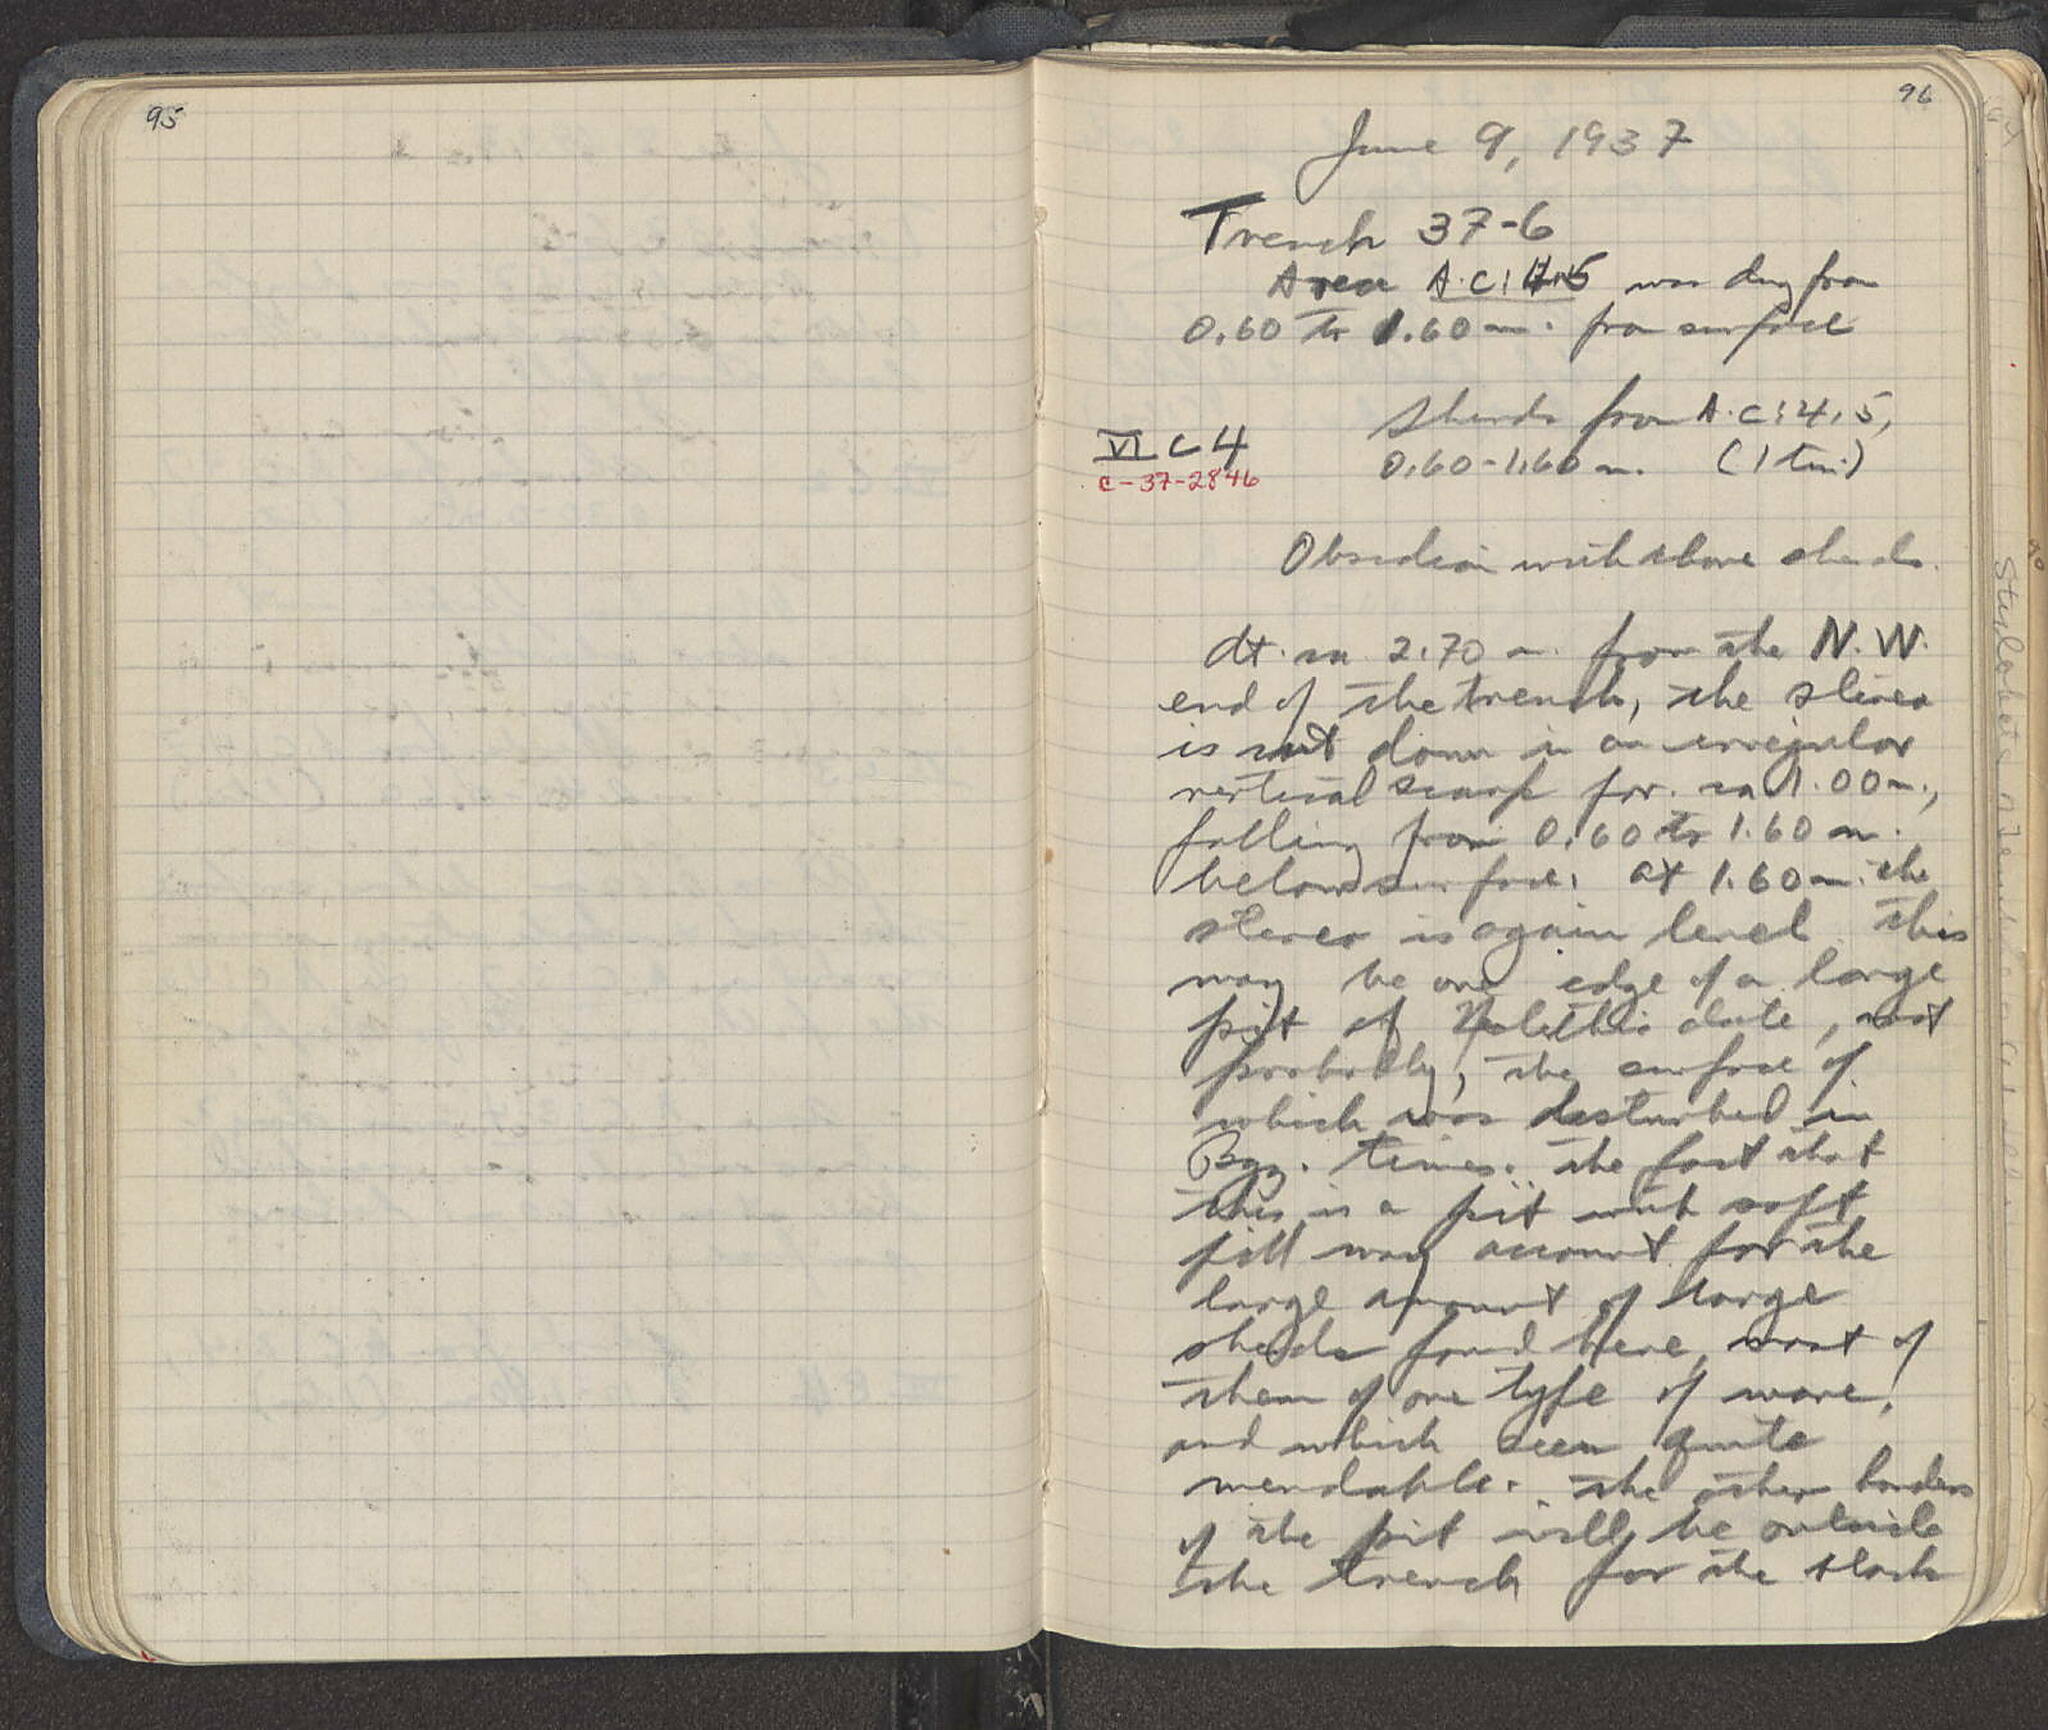 95
96
June 9, 1937
Trench 37-6
Area A-C:4,5 was dug from
0.60 to 1.60 m. from surface
Sherds from A-C:4,5,
VI C 4
0.60-1.60 m. (1 tin)
C-37-2846
Obsidian with above sherds.
At ca 2.70 m. from the N.W.
end of the trench, the stereo
is cut down in an irregular
vertical scarp for ca 1.00 m.,
falling from 0.60 to 1.60 m.
below surface. At 1.60 m. the
stereo is again level. This
may be one edge of a large
pit of Neolithic date, most
probably, the surface of
which was disturbed in
Byz. times. The fact that
this is a pit with soft
fill may account for the
large amount of large
sherds found here, most of
them of one type of ware,
and which seem quite
mendable. The other borders
of the pit will be outside
the trench for the black